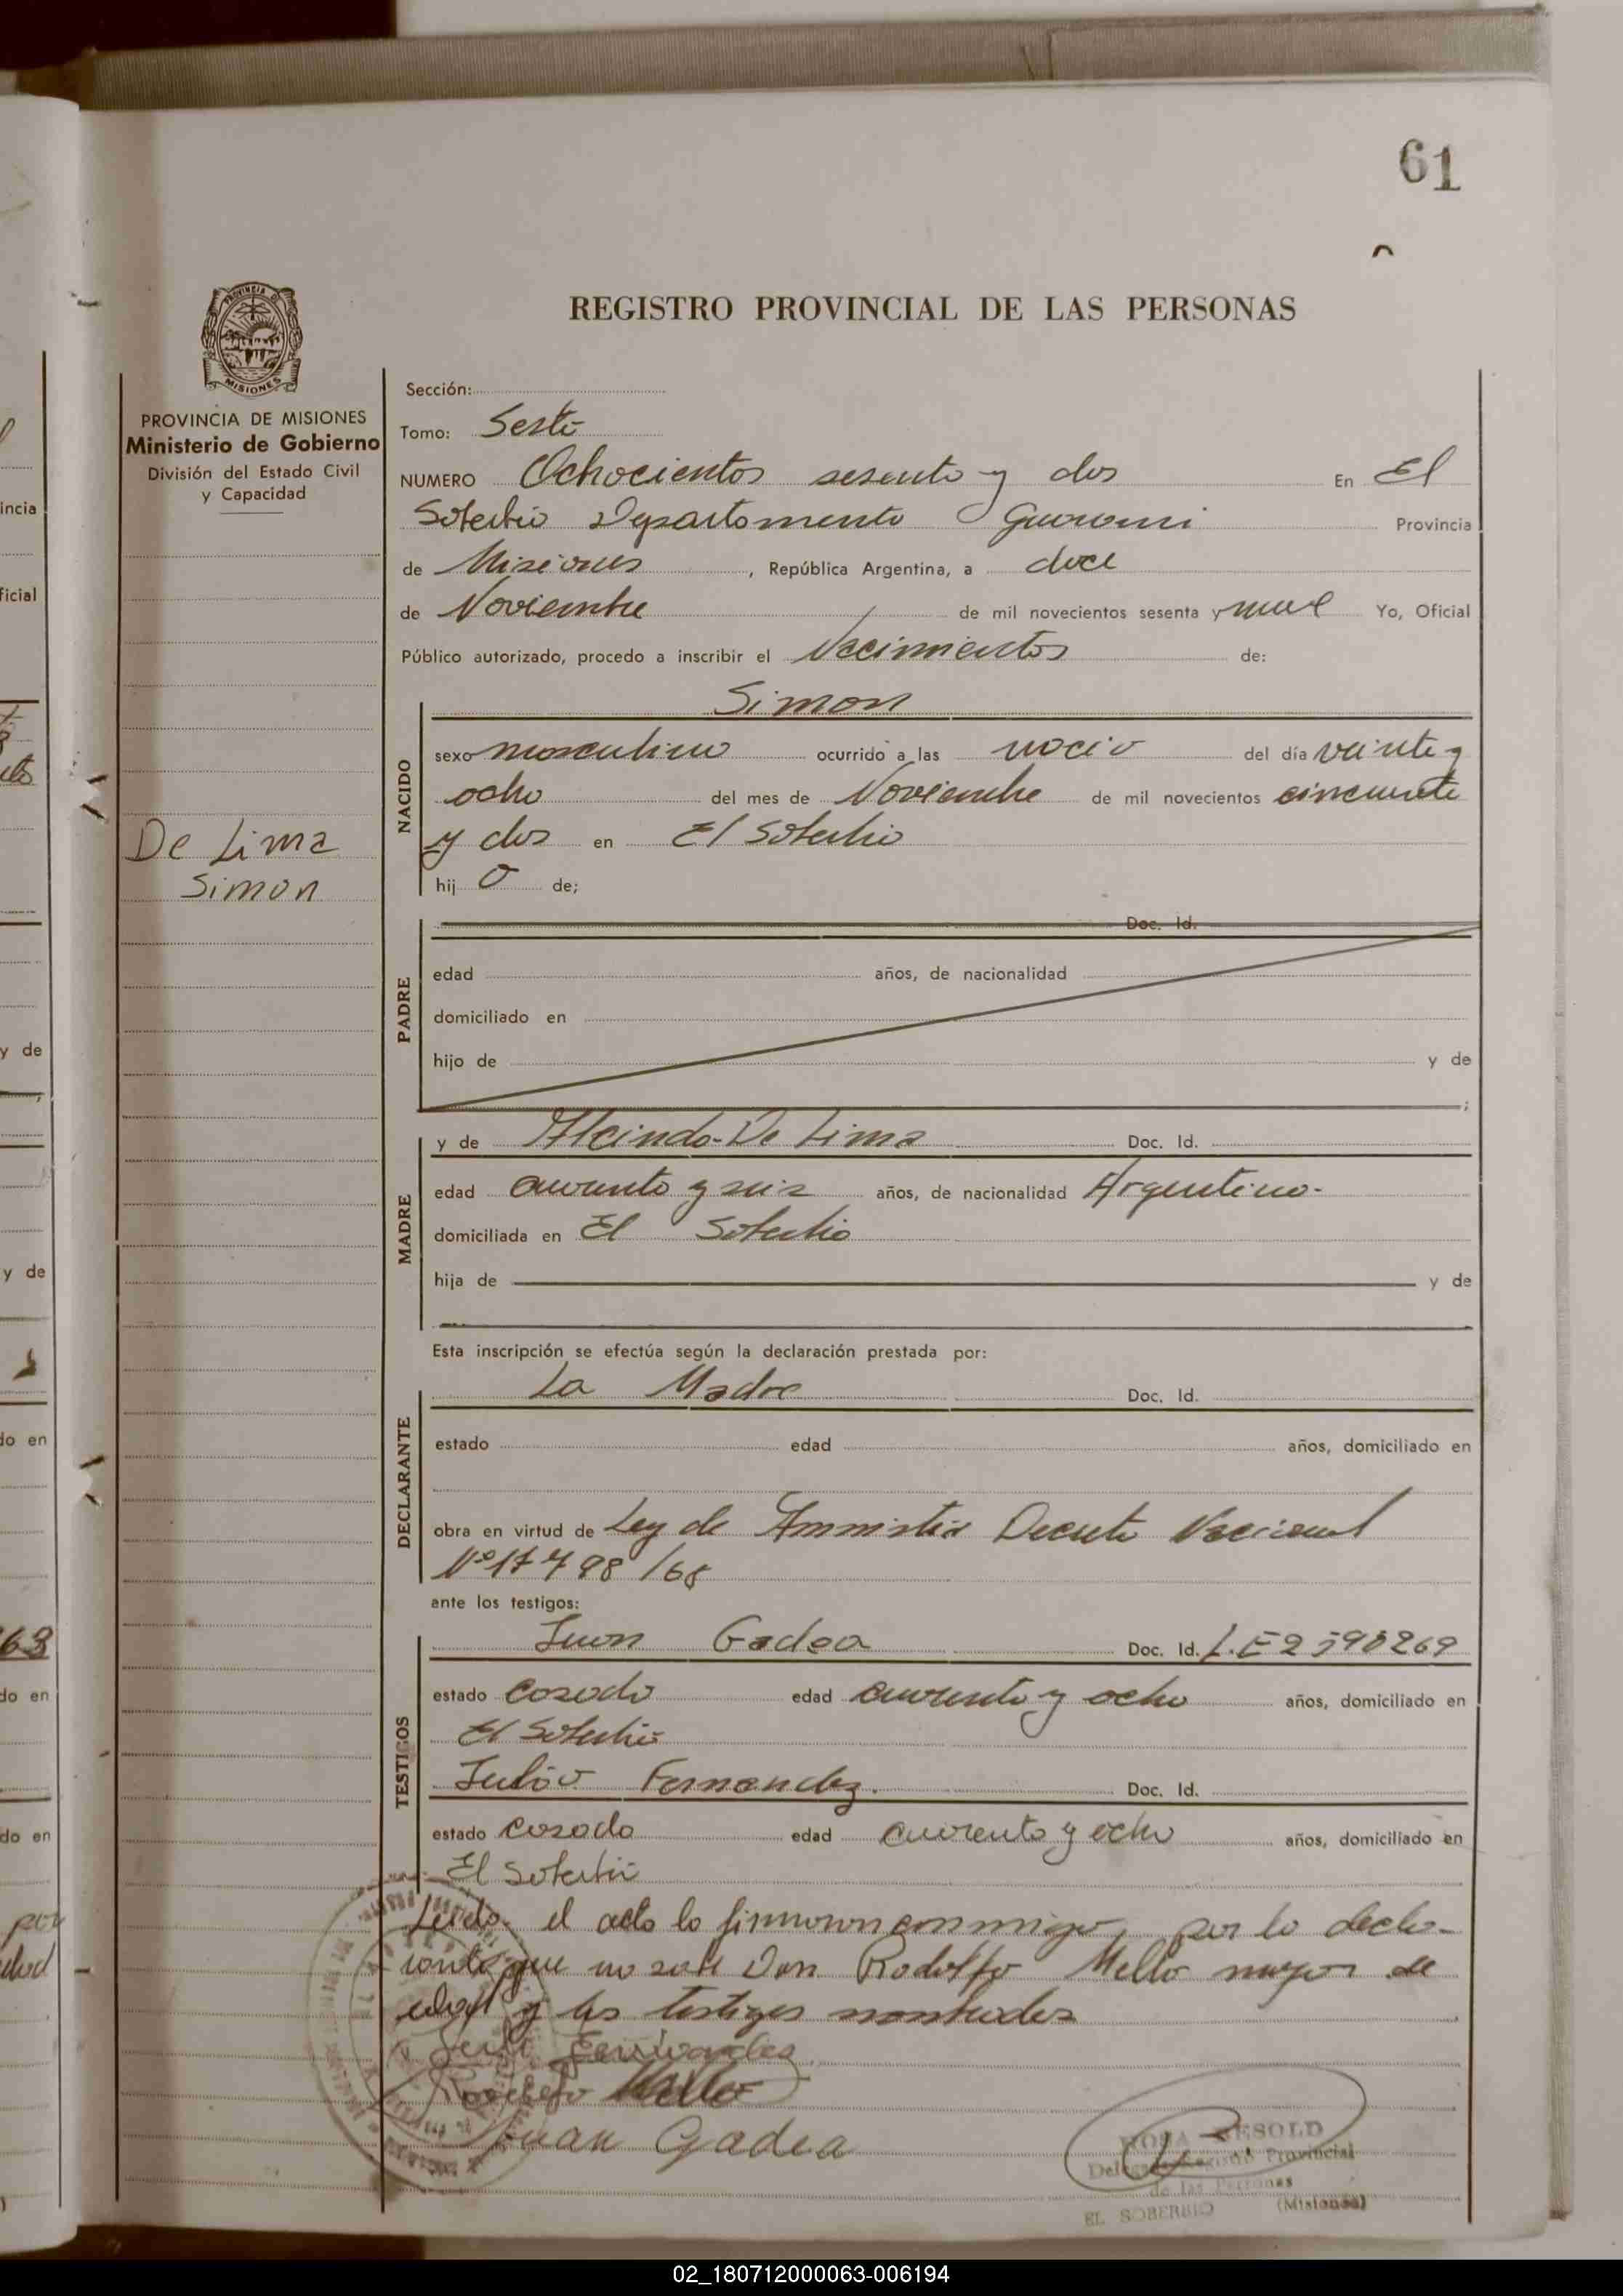 61
REGISTRO PROVINCIAL DE LAS PERSONAS
PROVINCIA DE MISIONES
Ministerio de Gobierno
División del Estado Civil
y Capacidad
De Lima
Simon
Sección:
Tomo: Sesto
NUMERO Ochocientos sesenta y dos En El
Soberbio Departamento Guarani Provincia
de Misiones, República Argentina, a doce
de Noviembre de mil novecientos sesenta y nueve Yo, Oficial
Público autorizado, procedo a inscribir el Nacimientos de:
Simon
NACIDO
sexo masculino ocurrido a las nacio del día veinte y
ocho del mes de Noviembre de mil novecientos cincuenta
y dos en El Soberbio
hij o de;
PADRE
Doc. Id.
edad años, de nacionalidad
domiciliado en
hijo de y de
;
MADRE
y de Alcinda De Lima Doc. Id.
edad cuarenta y seis años, de nacionalidad Argentina-
domiciliada en El Soberbio
hija de y de
Esta inscripción se efectúa según la declaración prestada por:
DECLARANTE
La Madre Doc. Id.
estado edad años, domiciliado en
obra en virtud de Ley de Amnistia Decreto Nacional
Nº 17498/68
ante los testigos:
TESTIGOS
Juan Gadea Doc. Id. L.E 2590269
estado casado edad cuarenta y ocho años, domiciliado en
El Soberbio
Julio Fernandez. Doc. Id.
estado casado edad cuarenta y ocho años, domiciliado en
El Soberbio
Leida el acta la firmaron conmigo, por la decla-
rante que no sabe Don Rodolfo Mello mayor de
edad y los testigos nombrados
Rodolfo Mello
Juan Gadea
ROSA RESOLD
Delegada Registro Provincial
de las Personas
EL SOBERBIO (Misiones)
02_180712000063-006194